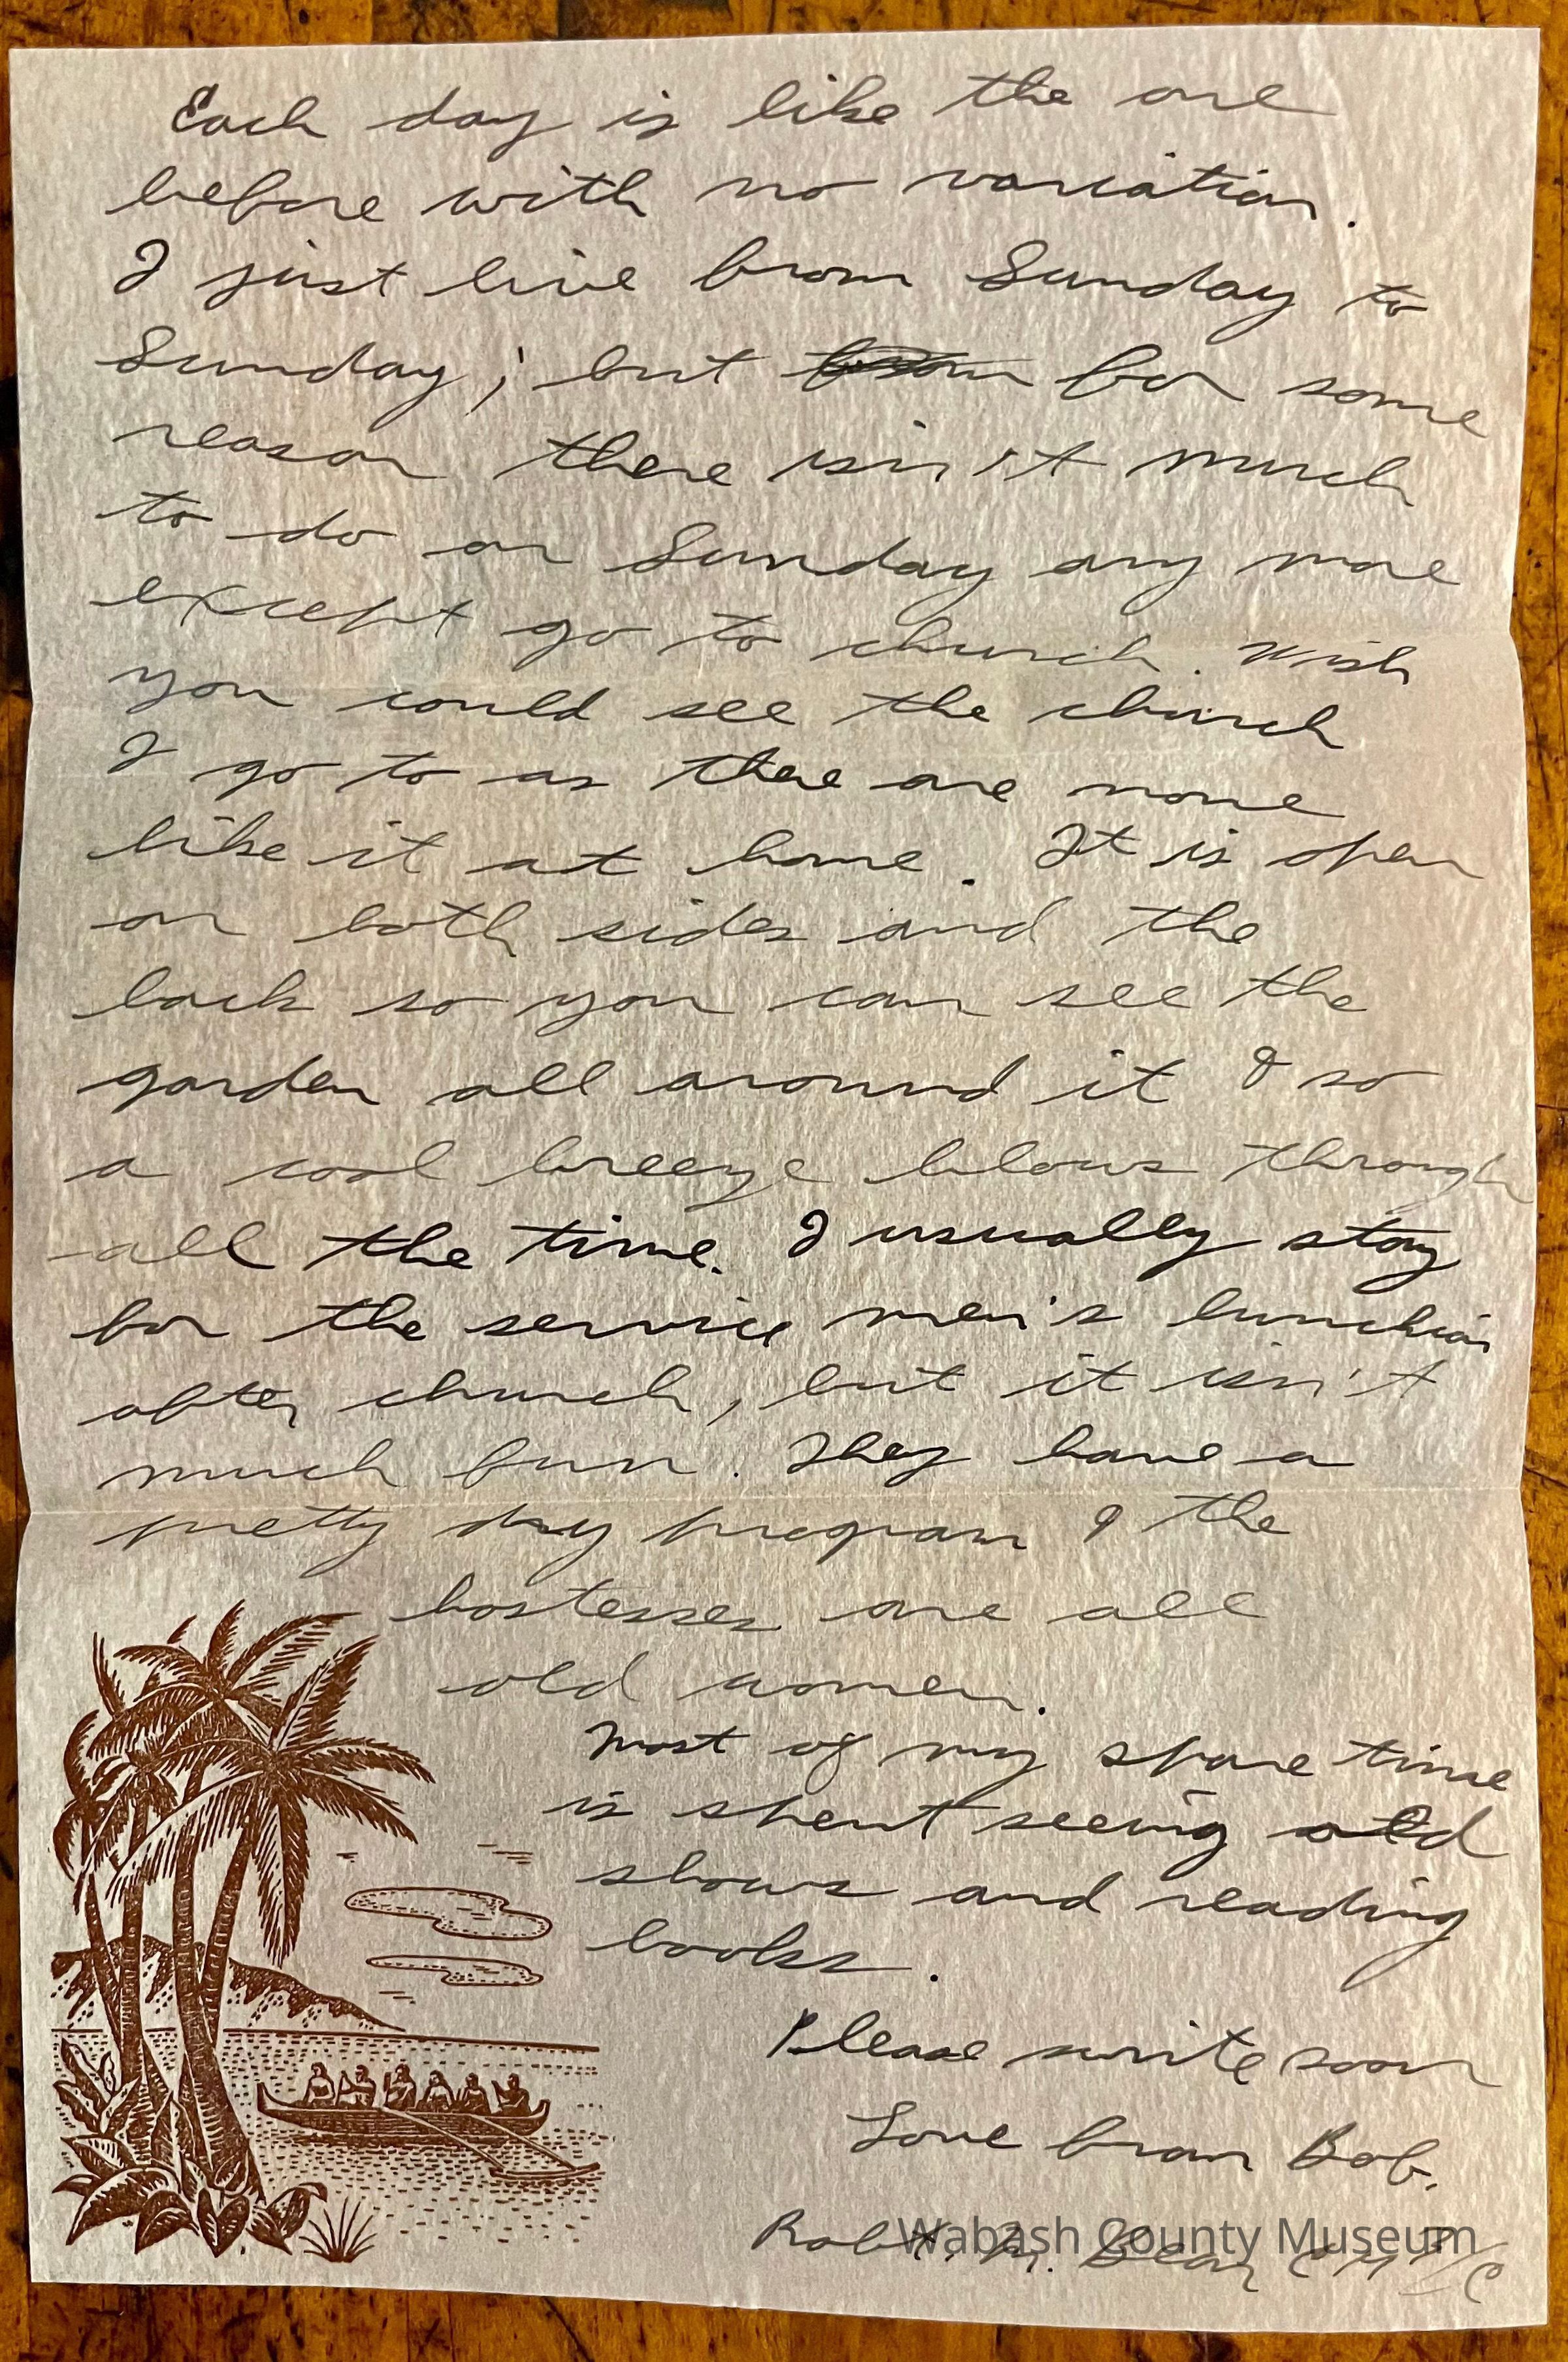 Each day is like the one
before with no variation.
I just live from Sunday to
Sunday; but for some
reason there isn't much
to do on Sunday any more
except go to church. Wish
you could see the church
I go to as there are none
like it at home. It is open
on both sides and the
back so you can see the
garden all around it & so
a cool breeze blows through
all the time. I usually stay
for the service men's lunchion
after church, but it isn't
much fun. They have a
pretty dry program & the
hostesses are all
old women.
Most of my spare time
is spent seeing old
shows and reading
books.
Please write soon
Love from Bob.
Robt. M. Bear
Wabash County Museum